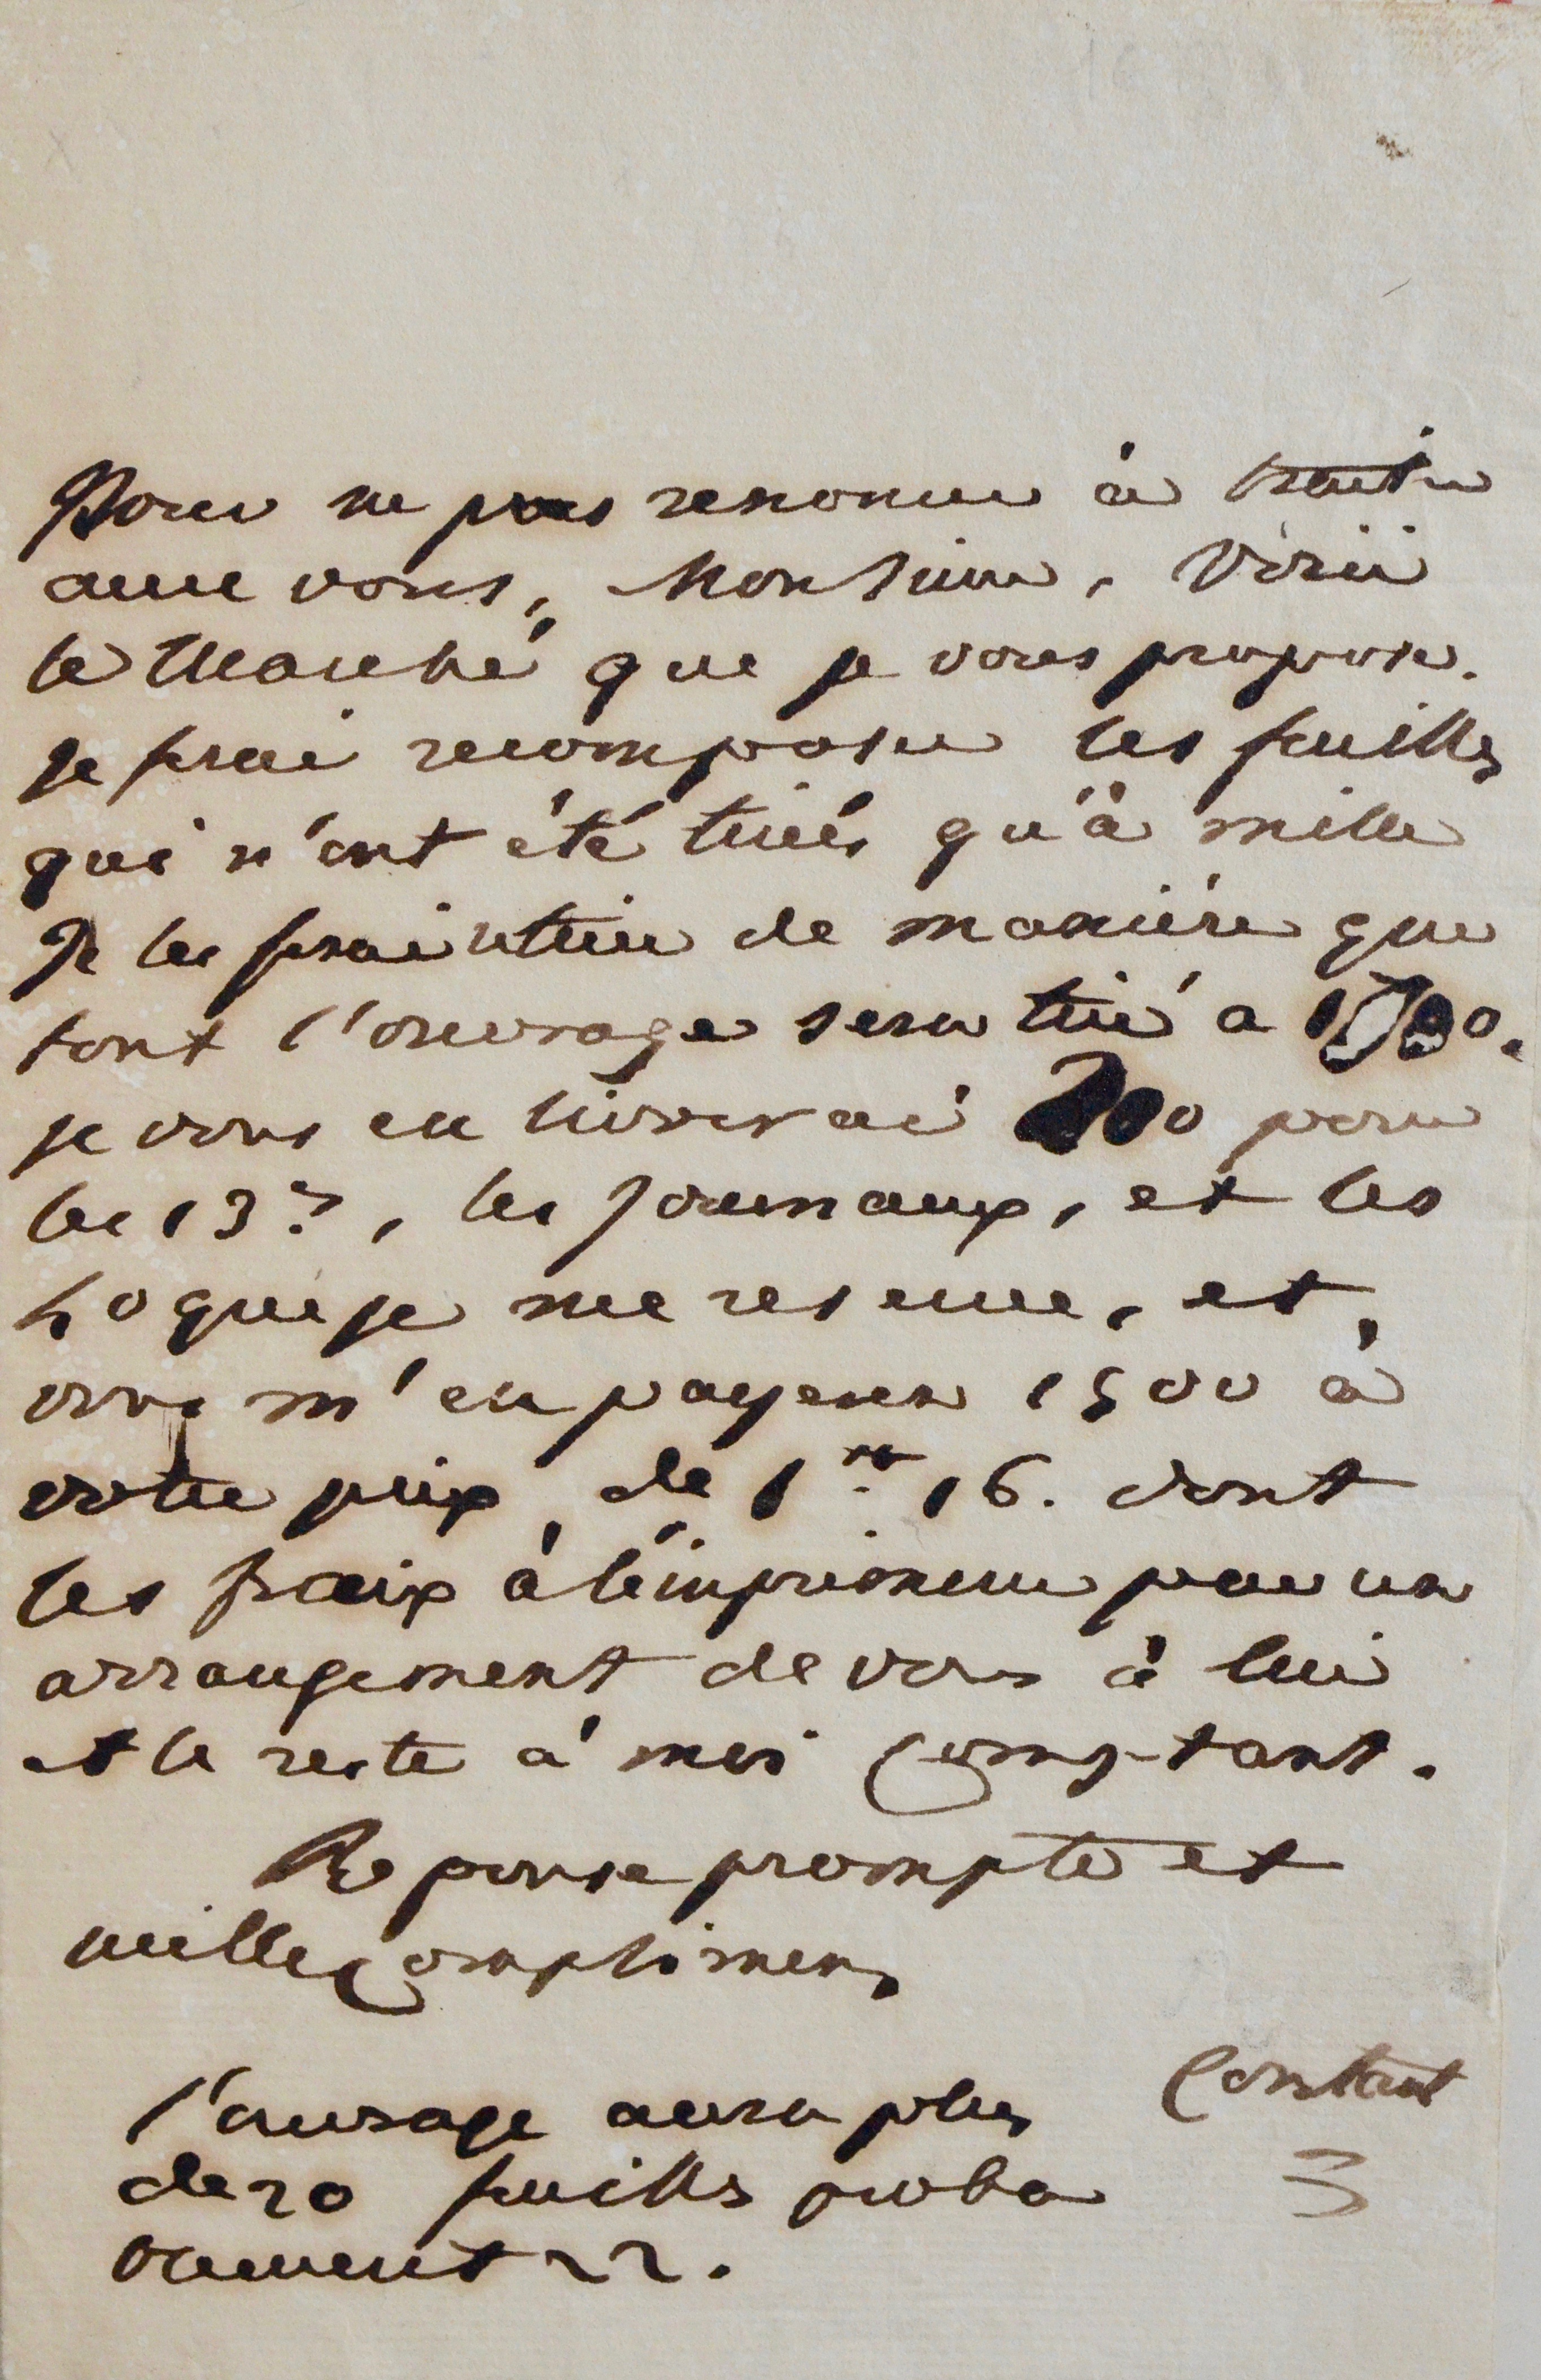 Pour ne pas renoncer à traiter
avec vous, Monsieur, voici
le Marché que je vous propose.
Je ferai recomposer les feuilles
qui n'ont été tirés qu'à mille
Je les ferai retirer de manière que
tout l'ouvrage sera tiré a
je vous en livrerai pour
les 13.e, les Journaux, et les
50 que je me reserve, et,
vous m'en payerez 1500 à
votre prix, de 1 16. dont
les fraix à l'imprimeur par un
arrangement de vous à lui
et le reste à moi Comptant.
Reponse prompte et
mille Complimens
Constant
l'ouvrage aura plus
de 20 feuilles proba
blement 22.